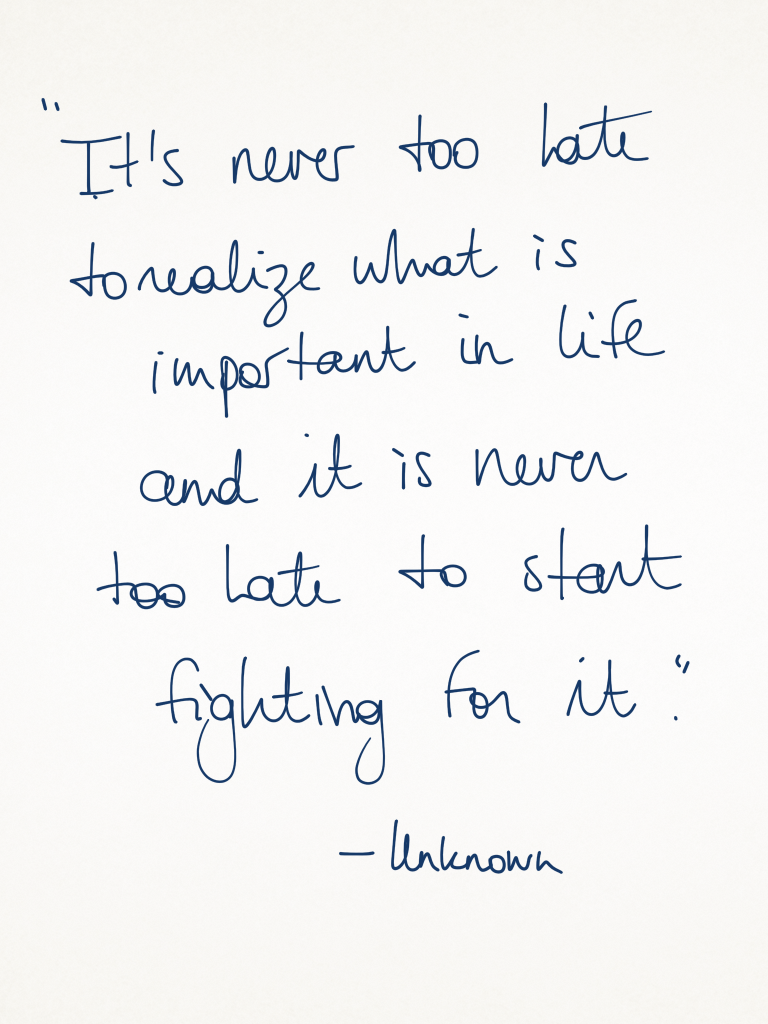 "It's never too late
to realize what is
important in life
and it is never
too late to start
fighting for it."
— Unknown